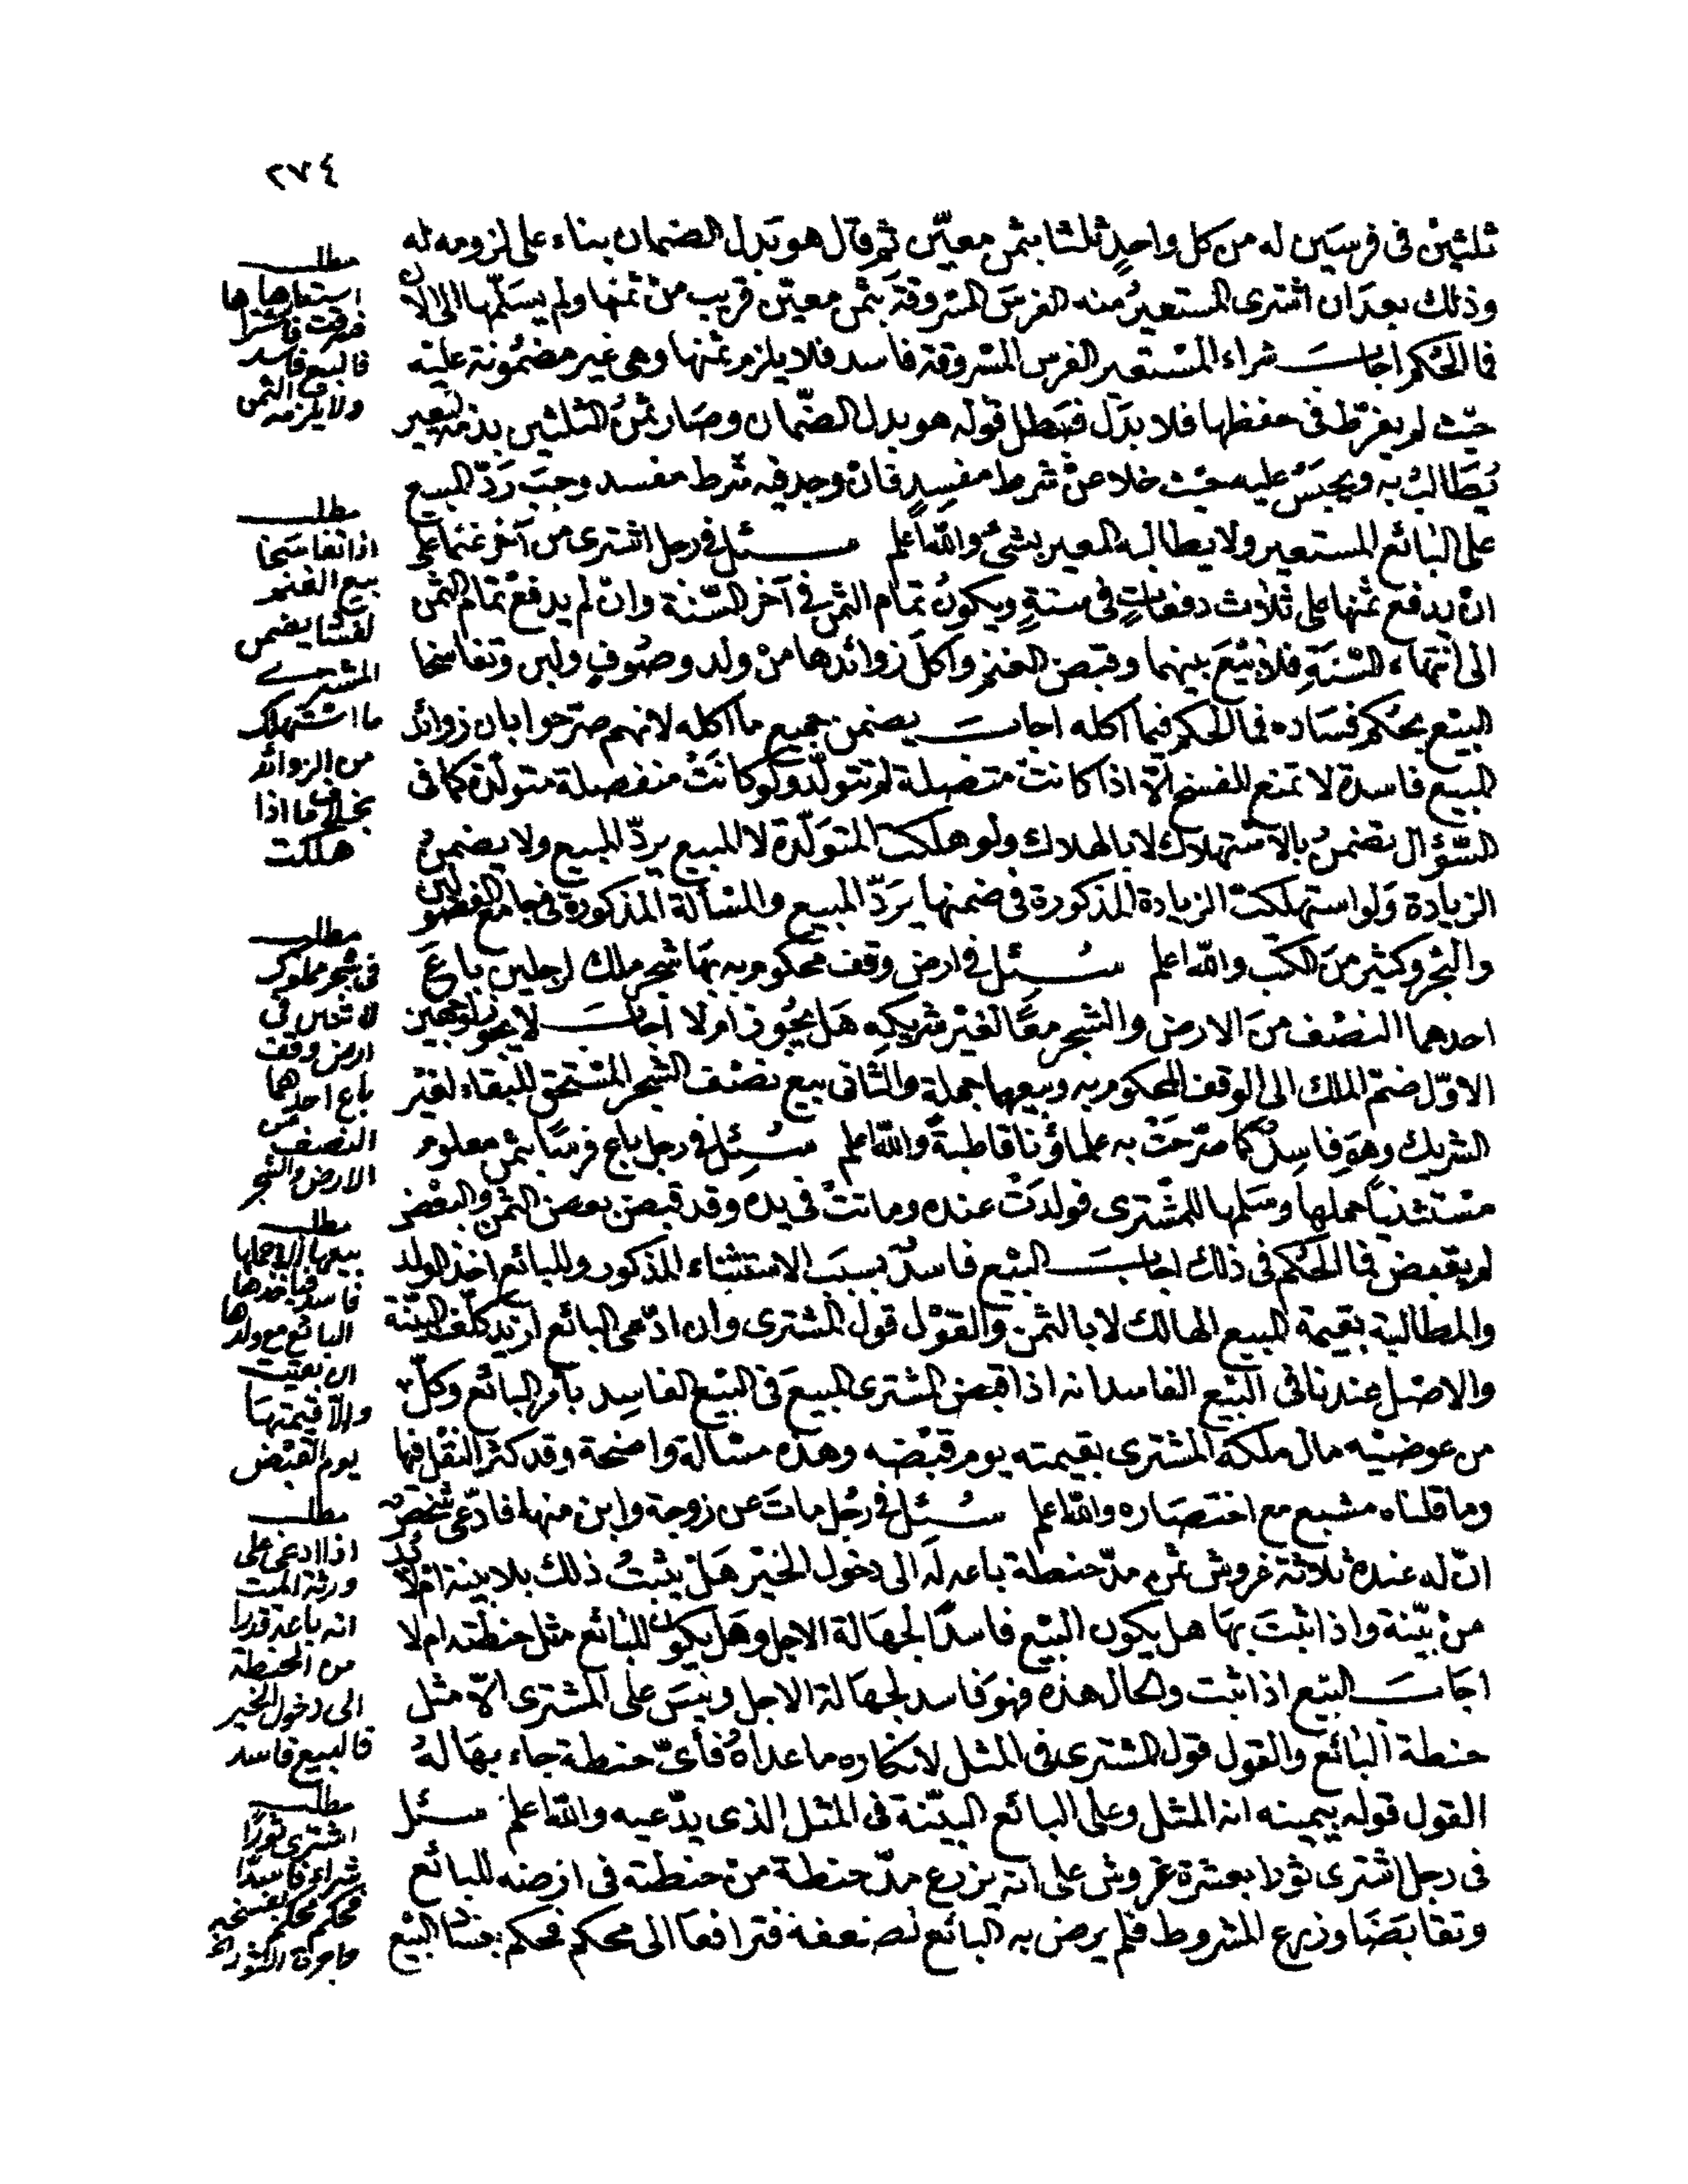 ٢٧٤
ثلثين في فرسين له من كل واحدٍ ثلثا بثمن معيّن ثم قال هو بدل الضمان بناء على لزومه له
وذلك بعد ان اشترى المستعيرُ منه الفرسَ المسروقةَ بثمن معيّن قريب من ثمنها ولم يسلّمها الى الآن
فما الحكم اجاب شراء المستعير الفرس المسروقة فاسد فلا يلزم ثمنها وهي غير مضمونة عليه
حيث لم يفرّط في حفظها فلا بدَل فبطل قوله هو بدل الضمان وصار ثمنُ الثلثين بذمة المعير
يُطالبُ به ويحبَسُ عليه حيث خلا عن شرط مفسِدٍ فان وجد فيه شرط مفسد وجبَ رَدّ المبيع
على البائع المستعير ولا يطالبه المعير بشئ والله اعلم سئل في رجل اشترى من آخر غنما على
ان يدفع ثمنها على ثلاث دفعاتٍ في سنةٍ ويكونُ تمام الثمن في آخر السّنة وان لم يدفع تمام الثمن
الى انتهاء السّنَةِ فلا بيْعَ بينهما وقبض الغنم واكل زوائدها من ولد وصُوفٍ ولبن وتفاسخا
البيع بحُكم فسَاده فما الحكم فيما اكله اجاب يضمن جميع ما اكله لانهم صرّحوا بان زوائد
المبيع فاسدة لا تمنع الفسخ الا اذا كانت متصلة لم تتولّد ولو كانَتْ منفصلة متولّدة كما في
السّؤال تضمنُ بالاستهلاك لا بالهلاك ولو هلكت المتوَلّدة لا المبيع يردّ المبيع ولا يضمنُ
الزيادة وَلو استهلكت الزيادة المذكورة في ضمنها يَردّ المبيع والمسألة المذكورة في جامع الفصولين
والبحر وكثير منَ الكتب والله اعلم سُئل في ارض وقف محكوم به بهَا شجر ملك لرجلين باعَ
احدهما النصْف منَ الارض والشجر معًا لغيْر شريكِه هَل يجُوز ام لا اجاب لا يجوز لوجهين
الاوّل ضمّ الملك الى الوقف المحكوم به وبيعهما جملة والثاني بيع نصْف الشجر المستحق للبقاء لغيْر
الشريك وهوَ فاسِدٌ كما صَرّحَتْ به علماؤنا قاطبةً والله اعلم سُئِل في رجل باع فرسًا بثمن معلوم
مسْتثنياً حملها وسَلمها للمشترى فولدَتْ عنده وماتتْ في يده وقد قبض بعض الثمن والبعْضُ
لم يقبض فما الحُكم في ذلك اجابَ البيْع فاسدٌ بسبَب الاستثناء المذكور وللبائع اخذ الولد
والمطالبة بقيمة المبيع الهالك لا بالثمن والقوْل قول المشترى وان ادّعى البائع ازيد كلّف البيّنة
والاصْل عندنا في البيْع الفاسد انه اذا قبض المشترى المبيعَ في البيْع الفاسِد بأمر البائع وكلّ
من عوضيْه مال ملكه المشترى بقيمته يوم قبْضه وهذه مسْألة واضحة وقد كثر النقْل فيها
وما قلناه مشبع مع اختصاره والله اعلم سُئل في رجُل ماتَ عن زوجة وابن منها فادّعى شخصٌ
انّ له عنده ثلاثة غروش ثمن مدّ حنطة باعه له الى دخول الخيْر هَل يثبتُ ذلك بلا بينة ام لا بُد
منْ بيّنة واذا ثبتَ بهَا هل يكون البيْع فاسدًا لجهَالة الاجل وهَل يكون للبائع مثل حنطته ام لا
اجَابَ البيْع اذا ثبت والحال هذه فهوَ فاسد لجهَالة الاجل وليسَ على المشترى الّا مثل
حنطة البَائع والقول قول المشترى في المثل لانكاره ما عداهُ فأىّ حنطة جاء بهَا لهُ
القول قوله بيمينه انه المثل وعلى البائع البيّنة في المثل الذى يدّعيه والله اعلم سئل
في رجل اشترى ثورا بعشرة غروش على انه يزرع مدّ حنطة منْ حنطته في ارضه للبائع
وتقابَضَا وزرع المشروط فلم يرض به البائع لضعفه فترافعَا الى محكم فحكم بفساد البيْع
مطلب
استعارها
فسرقت فاشتراها
فالبيع فاسد
ولا يلزمه الثمن
مطلب
اذا تفاسَخا
بيع الغنم
لفسَاد يضمن
المشترى
ما استهلك
من الزوائد
بخلاف ما اذا
هلكت
مطلب
في شجر مملوك
لاثنين في
ارض وقف
باع احدهما
النصف من
الارض والشجر
مطلب
بيعها الا حملها
فاسد فياخذها
البائع مع ولدها
ان بقيت
والّا قيمتهَا
يوم القبْض
مطلب
اذا ادعى على
ورثة الميت
انه باعه قدرا
من الحنطة
الى دخول الخير
فالبيع فاسد
مطلب
اشترى ثورًا
شراء فاسدًا
فحكم محكم بفسخه